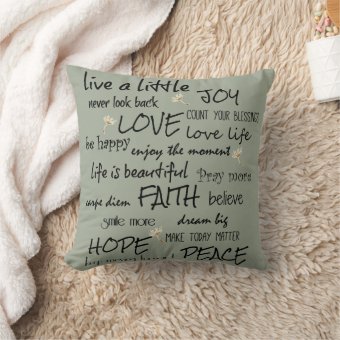 live a little
never look back JOY
LOVE COUNT YOUR BLESSINGS
love life
be happy
enjoy the moment
life is beautiful Pray more
carpe diem FAITH believe
smile more dream big
HOPE MAKE TODAY MATTER
PEACE